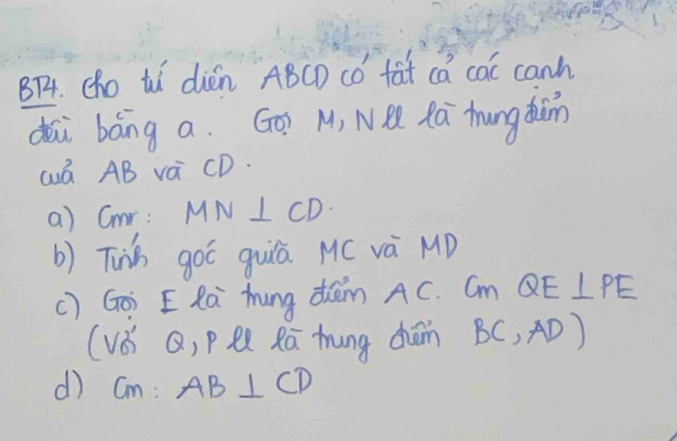 BT4. Cho tứ diện ABCD có tất cả các cạnh
đều bằng a. Gọi M, N ll là trung điểm
của AB và CD.
a) Cmr: MN ⊥ CD.
b) Tính góc giữa MC và MD
c) Gọi E là trung điểm AC. Cm QE ⊥ PE
(Với Q, P ll là trung điểm BC, AD)
d) Cm: AB ⊥ CD